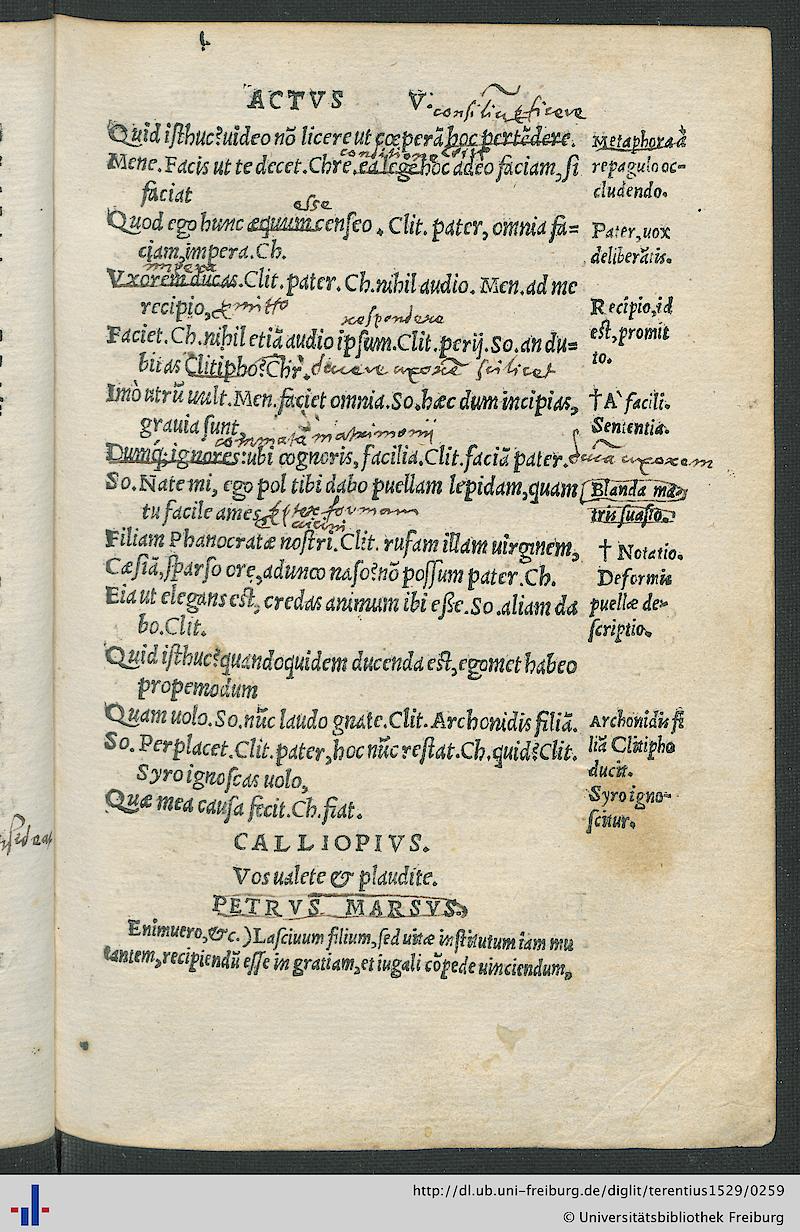 ACTVS V.
consiliũ efficere
Quid isthuc? uideo nõ licere ut cœperã hoc pertẽdere.
Metaphora à
Mene. Facis ut te decet. Chre. ea lege hoc adeo faciam, si
repagulo oc-
faciat
cludendo.
esse
Quod ego hunc æquum censeo. Clit. pater, omnia fa=
Pater, uox
ciam, impera. Ch.
deliberãtis.
impera
Vxorem ducas. Clit. pater. Ch. nihil audio. Men. ad me
recipio,
Recipio, id
respondere
Faciet. Ch. nihil etiã audio ipsum. Clit. perij. So. an du=
est, promit
to.
bitas Clitipho? Chr. ducere uxorẽ scilicet
Imò utrũ uult. Men. faciet omnia. So. hæc dum incipias,
† A' facili.
grauia sunt,
Sententia.
matrimonii
Dumq́; ignores: ubi cognoris, facilia. Clit. faciã pater. ducã uxorem
So. Nate mi, ego pol tibi dabo puellam lepidam, quam
Blanda ma-
tu facile ames,
tris suasio.
Filiam Phanocratæ nostri. Clit. rufam illam uirginem,
† Notatio.
Cæsiã, sparso ore, adunco naso? nõ possum pater. Ch.
Deformis
Eia ut elegans est, credas animum ibi esse. So. aliam da
puellæ de-
bo. Clit.
scriptio.
Quid isthuc? quandoquidem ducenda est, egomet habeo
propemodum
Quam uolo. So. nũc laudo gnate. Clit. Archonidis filiã.
Archonidis fi
So. Perplacet. Clit. pater, hoc nũc restat. Ch. quid? Clit.
liã Clitipho
Syro ignoscas uolo,
ducit.
Quæ mea causa fecit. Ch. fiat.
Syro igno-
scitur.
CALLIOPIVS.
Vos ualete & plaudite.
PETRVS MARSVS.
Enimuero, &c.) Lasciuum filium, sed uitæ institutum iam mu
tantem, recipiendũ esse in gratiam, et iugali cõpede uinciendum,
http://dl.ub.uni-freiburg.de/diglit/terentius1529/0259
© Universitätsbibliothek Freiburg